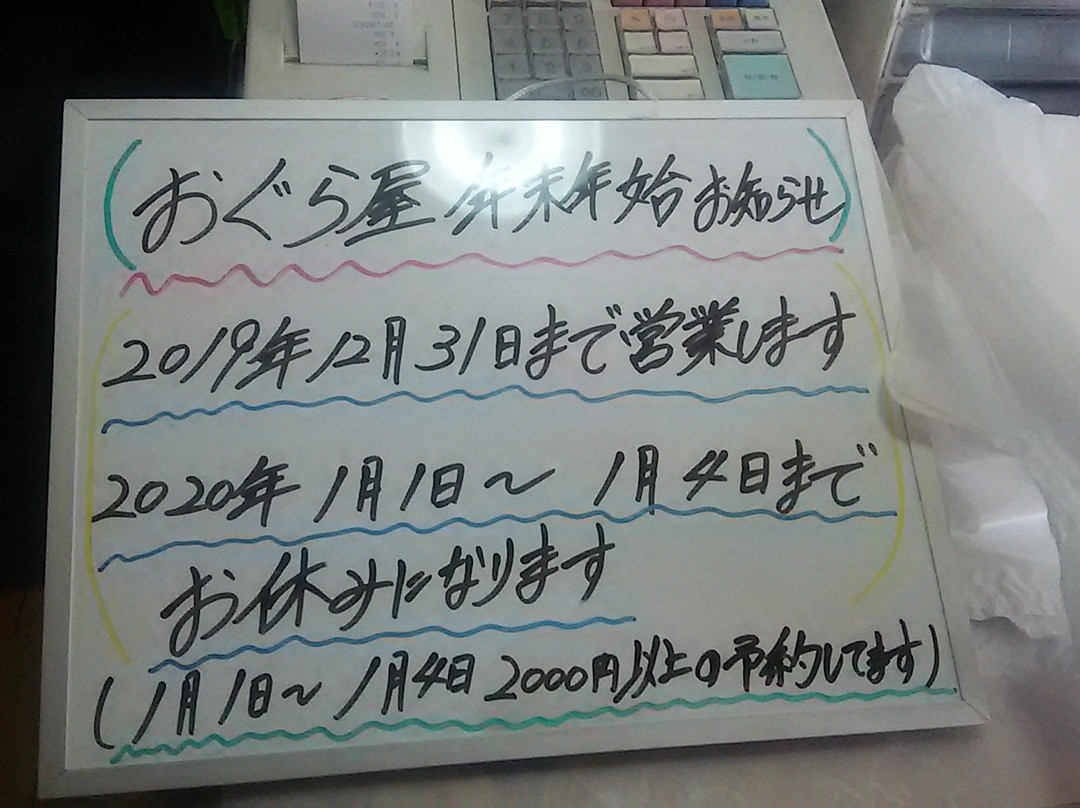 (おぐら屋 年末年始 お知らせ)
2019年12月31日まで営業します
2020年 1月1日〜 1月4日まで
お休みになります
(1月1日〜1月4日 2000円以上の予約してます)